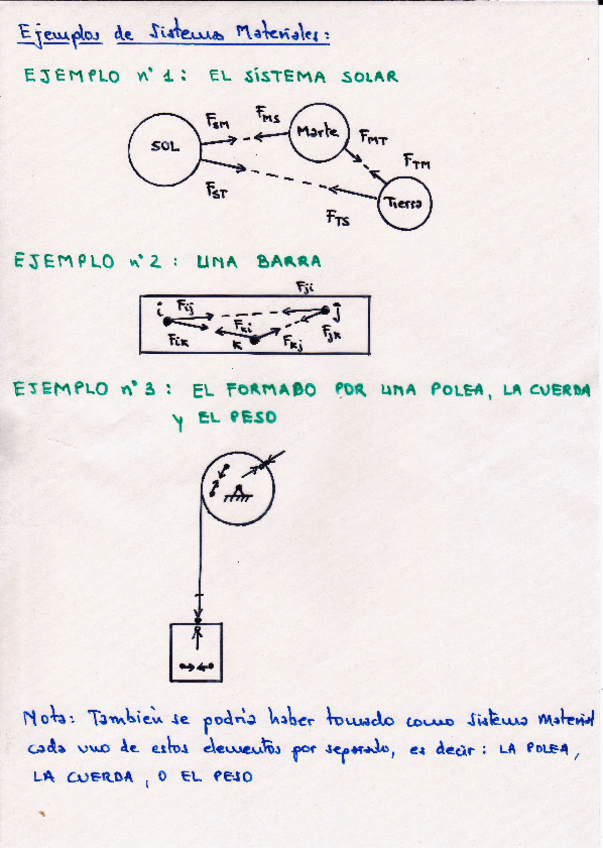 Ejemplos de Sistemas Materiales:
EJEMPLO nº 1: EL SISTEMA SOLAR
F_SM F_MS
SOL Marte F_MT
F_TM
F_ST Tierra
F_TS
EJEMPLO nº 2: UNA BARRA
F_ji
i F_ij j
F_ik F_ki F_jk
k F_kj
EJEMPLO nº 3: EL FORMADO POR UNA POLEA, LA CUERDA
y EL PESO
Nota: También se podría haber tomado como Sistema Material
cada uno de estos elementos por separado, es decir: LA POLEA,
LA CUERDA, O EL PESO